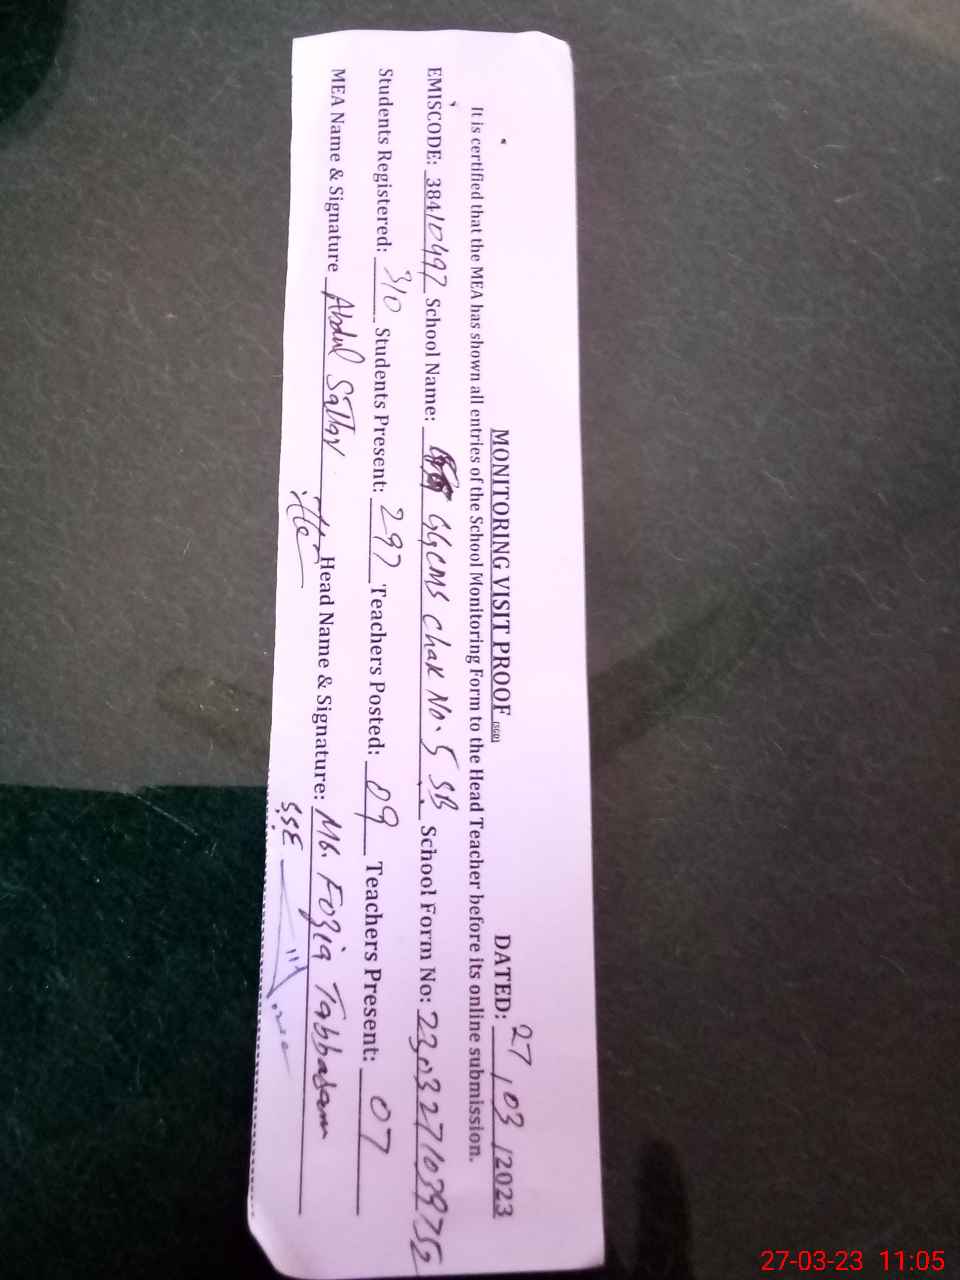 MONITORING VISIT PROOF (SGD) DATED: 27/03/2023
It is certified that the MEA has shown all entries of the School Monitoring Form to the Head Teacher before its online submission.
EMISCODE: 38410497 School Name: GGCMS Chak No. 5 SB School Form No: 2303271039752
Students Registered: 310 Students Present: 297 Teachers Posted: 09 Teachers Present: 07
MEA Name & Signature Abdul Sattar Head Name & Signature: Ms. Fozia Tabbasam
SSE
27-03-23 11:05